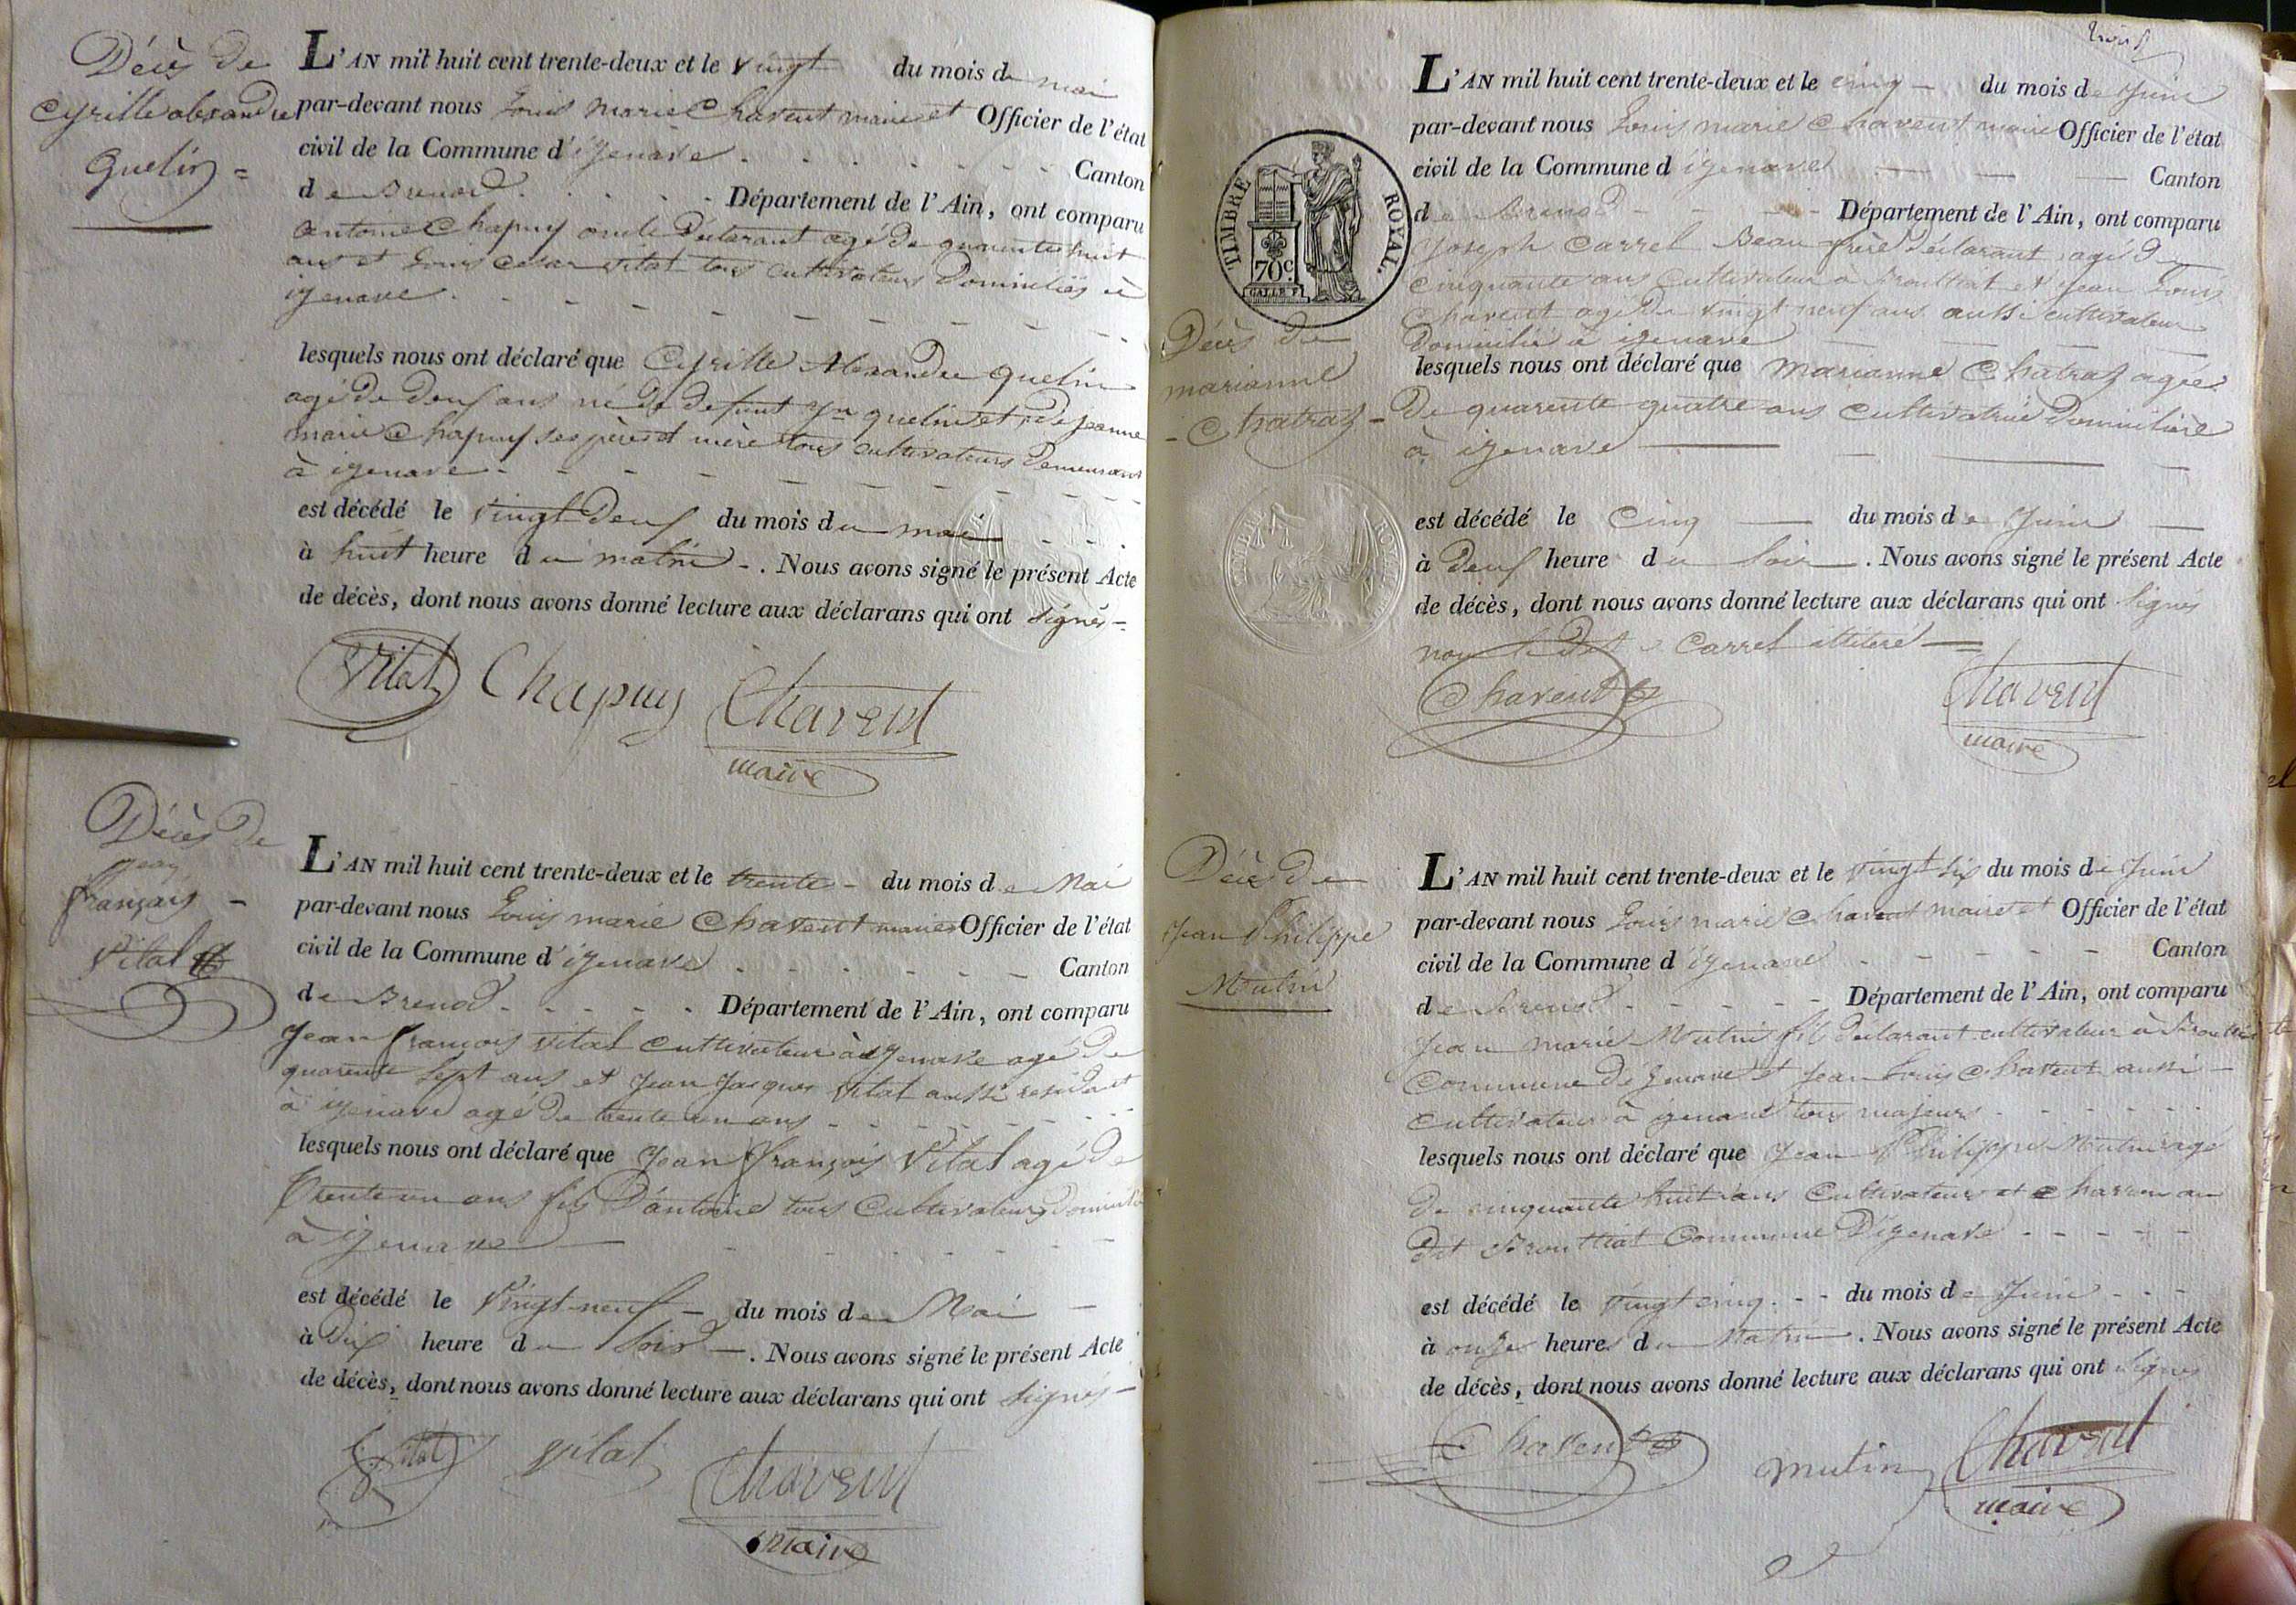 Décès de
Cyrille alexandre
Quelin =
L'AN mil huit cent trente-deux et le vingt du mois de mai
par-devant nous Louis marie Chavent maire et Officier de l'état
civil de la Commune d'izenave Canton
de Brenod Département de l'Ain, ont comparu
antoine Chapuy oncle déclarant agé de quarante huit
ans et Louis cesar vital tous cultivateurs domiciliés à
izenave
lesquels nous ont déclaré que Cyrille Alexandre quelin
agé de deux ans né de defunt quelin et de jeanne
marie Chapuy ses père et mère tous cultivateurs demeurant
à izenave
est décédé le vingt deux du mois de mai
à huit heure du matin. Nous avons signé le présent Acte
de décès, dont nous avons donné lecture aux déclarans qui ont signés
Vital Chapuy Chavent
maire
Décès de
jean
françois
Vital
L'AN mil huit cent trente-deux et le trente du mois de Mai
par-devant nous Louis marie Chavent maire Officier de l'état
civil de la Commune d'izenave Canton
de Brenod Département de l'Ain, ont comparu
Jean françois vital cultivateur à izenave agé de
quarente sept ans et Jean Jacques vital aussi residant
à izenave agé de trente un ans
lesquels nous ont déclaré que Jean françois Vital agé de
trente un ans fils d'antoine tous cultivateurs
à izenave
est décédé le Vingt-neuf du mois de Mai
à dix heure du soir. Nous avons signé le présent Acte
de décès, dont nous avons donné lecture aux déclarans qui ont signés
Vital vital Chavent
maire
TIMBRE ROYAL.
70c
Décès de
marianne
Chatraz
L'AN mil huit cent trente-deux et le cinq du mois de Juin
par-devant nous Louis marie Chavent maire Officier de l'état
civil de la Commune d izenave Canton
de Brenod Département de l'Ain, ont comparu
Joseph Carrel Beau frère déclarant agé de
cinquante ans cultivateur à et Jean Louis
Chavent agé de vingt neuf ans aussi cultivateur
domicilié à izenave
lesquels nous ont déclaré que Marianne Chatraz agée
de quarente quatre ans cultivatrice domiciliée
à izenave
est décédé le Cinq du mois de Juin
à deux heure du soir. Nous avons signé le présent Acte
de décès, dont nous avons donné lecture aux déclarans qui ont signés
non Carrel illiteré
Chavent Chavent
maire
Décès de
Jean Philippe
Mutin
L'AN mil huit cent trente-deux et le vingt six du mois de Juin
par-devant nous Louis marie Chavent maire et Officier de l'état
civil de la Commune d'izenave Canton
de Brenod Département de l'Ain, ont comparu
Jean marie Mutin fils déclarant cultivateur à
Commune de izenave et Jean Louis Chavent aussi
cultivateur à izenave tous majeurs
lesquels nous ont déclaré que Jean Philippe Mutin agé
de cinquante huit ans Cultivateur et charron au
dit Commune d'izenave
est décédé le vingt cinq du mois de Juin
à onze heures du Matin. Nous avons signé le présent Acte
de décès, dont nous avons donné lecture aux déclarans qui ont signés
Chavent mutin Chavent
maire